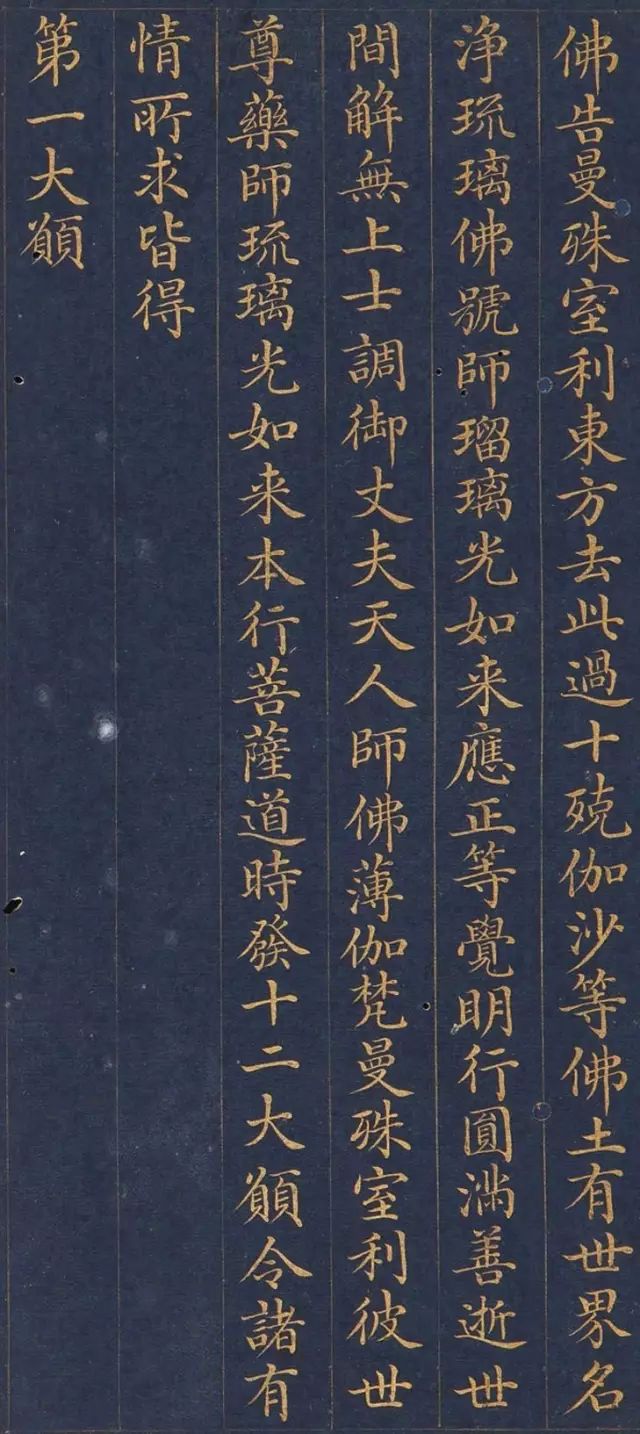 佛告曼殊室利東方去此過十殑伽沙等佛土有世界名
浄琉璃佛號師瑠璃光如来應正等覺明行圓滿善逝世
間解無上士調御丈夫天人師佛薄伽梵曼殊室利彼世
尊藥師琉璃光如来本行菩薩道時發十二大願令諸有
情所求皆得
第一大願